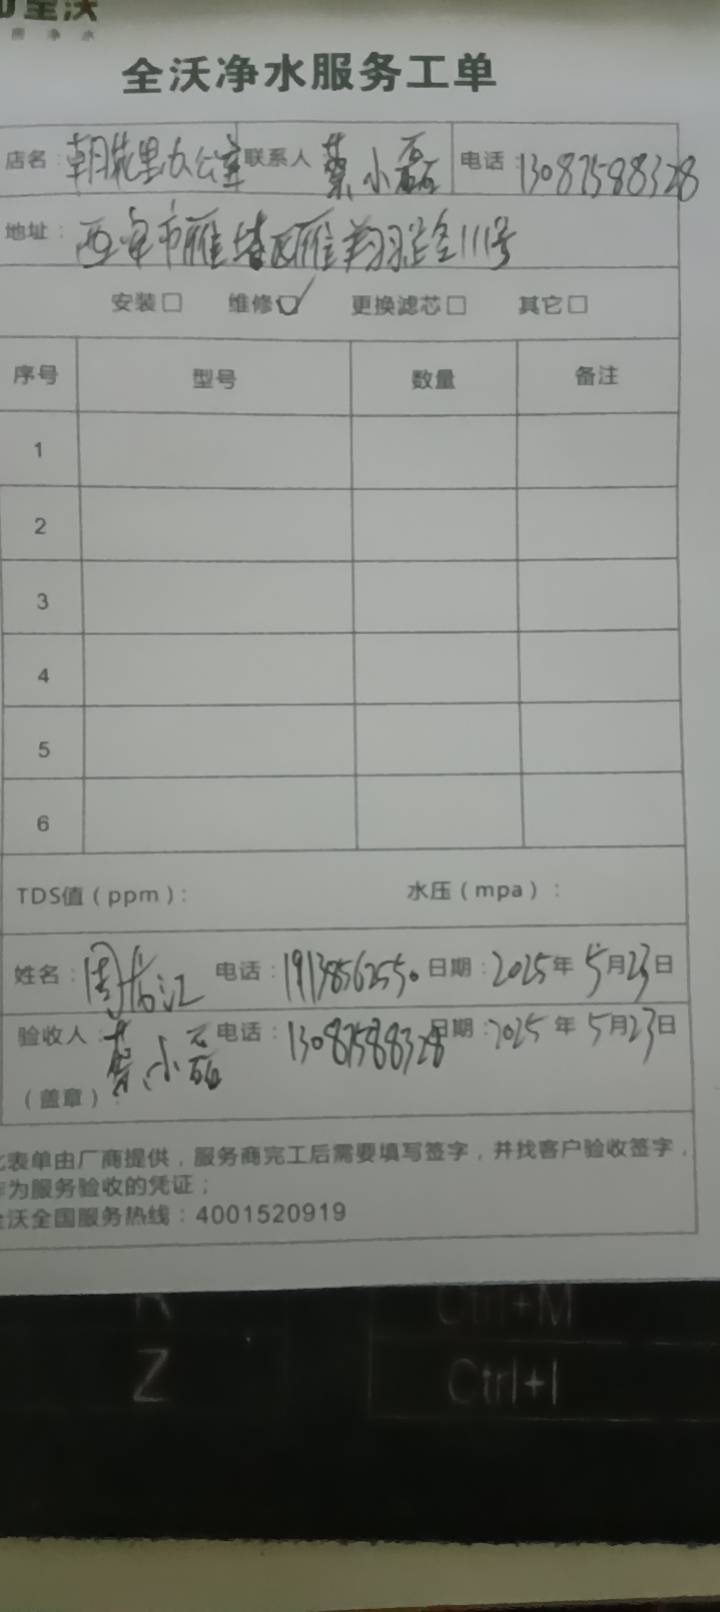 全沃
净水
全沃净水服务工单
店名：朝花里办公室 联系人 蔡小磊 电话：13087588328
地址：西安市雁塔区雁翔路111号
安装□ 维修☑ 更换滤芯□ 其它□
序号 型号 数量 备注
1
2
3
4
5
6
TDS值（ppm）： 水压（mpa）：
姓名：周 江 电话：19138562550 日期：2025年5月23日
验收人：蔡小磊 电话：13087588328 日期：2025年5月23日
（盖章）：
表单由厂商提供，服务商完工后需要填写签字，并找客户验收签字，
为服务验收的凭证；
沃全国服务热线：4001520919
Ctrl+M
Z Ctrl+I